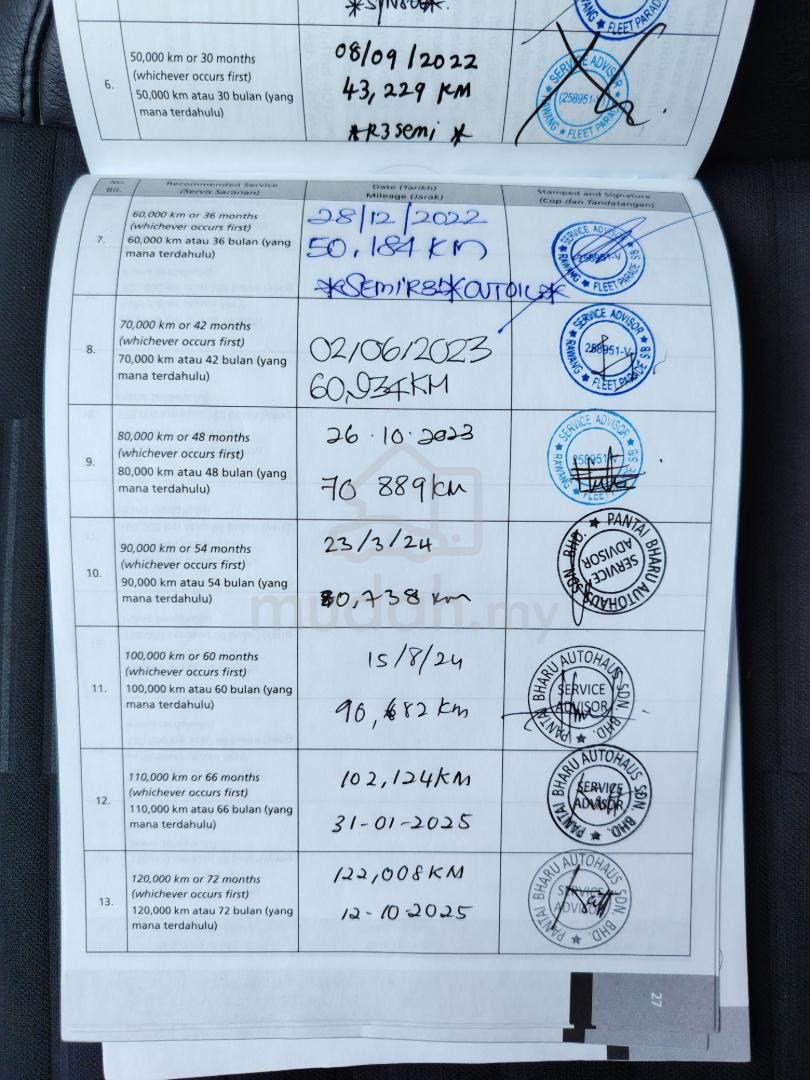 6.
50,000 km or 30 months
(whichever occurs first)
50,000 km atau 30 bulan (yang
mana terdahulu)
08/09/2022
43,229 KM
*R3 Semi *
SERVICE ADVISOR
(258951-V)
RAWANG ★ FLEET PARADE
No.
Bil.
Recommended Service
(Servis Saranan)
Date (Tarikh)
Mileage (Jarak)
Stamped and Signature
(Cop dan Tandatangan)
7.
60,000 km or 36 months
(whichever occurs first)
60,000 km atau 36 bulan (yang
mana terdahulu)
28/12/2022
50,184 KM
SERVICE ADVISOR
258951-V
RAWANG ★ FLEET PARADE BS
8.
70,000 km or 42 months
(whichever occurs first)
70,000 km atau 42 bulan (yang
mana terdahulu)
02/06/2023
60,934KM
SERVICE ADVISOR
258951-V
RAWANG ★ FLEET PARADE BS
9.
80,000 km or 48 months
(whichever occurs first)
80,000 km atau 48 bulan (yang
mana terdahulu)
26.10.2023
70 889km
SERVICE ADVISOR
258951-V
RAWANG ★ FLEET
10.
90,000 km or 54 months
(whichever occurs first)
90,000 km atau 54 bulan (yang
mana terdahulu)
23/3/24
80,738 km
★ PANTAI BHARU AUTOHAUS SDN. BHD.
SERVICE
ADVISOR
mudah.my
11.
100,000 km or 60 months
(whichever occurs first)
100,000 km atau 60 bulan (yang
mana terdahulu)
15/8/24
90,682 km
★ PANTAI BHARU AUTOHAUS SDN. BHD.
SERVICE
ADVISOR
12.
110,000 km or 66 months
(whichever occurs first)
110,000 km atau 66 bulan (yang
mana terdahulu)
102,124KM
31-01-2025
★ PANTAI BHARU AUTOHAUS SDN. BHD.
SERVICE
ADVISOR
13.
120,000 km or 72 months
(whichever occurs first)
120,000 km atau 72 bulan (yang
mana terdahulu)
122,008KM
12-10-2025
★ PANTAI BHARU AUTOHAUS SDN. BHD.
SERVICE
ADVISOR
27